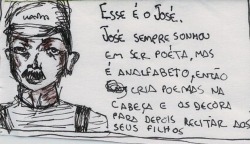 ESSE É O JOSÉ.
JOSÉ SEMPRE SONHOU
EM SER POÉTA, MAS
É ANALFABETO, ENTÃO
CRIA POEMAS NA
CABEÇA E OS DECORA
PARA DEPOIS RECITAR AOS
SEUS FILHOS